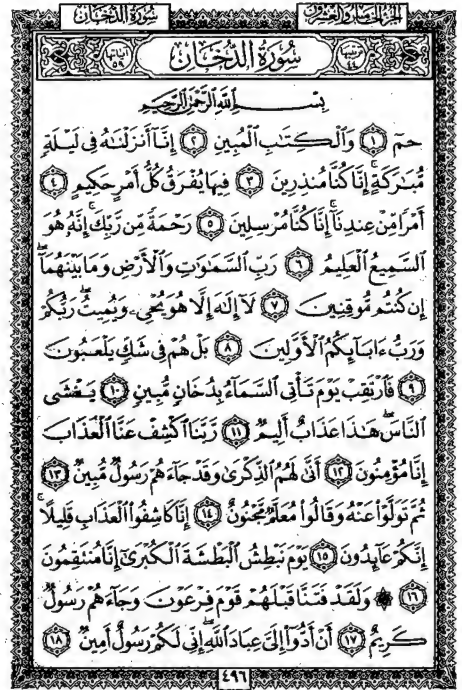 الجزء الخامس والعشرون
سورة الدخان
ترتيبها ٤٤
سُورَةُ الدُّخَانِ
آياتها ٥٩
بِسْمِ اللَّهِ الرَّحْمَٰنِ الرَّحِيمِ
حمٓ ١ وَٱلْكِتَٰبِ ٱلْمُبِينِ ٢ إِنَّآ أَنزَلْنَٰهُ فِى لَيْلَةٍ
مُّبَٰرَكَةٍ إِنَّا كُنَّا مُنذِرِينَ ٣ فِيهَا يُفْرَقُ كُلُّ أَمْرٍ حَكِيمٍ ٤
أَمْرًا مِّنْ عِندِنَآ إِنَّا كُنَّا مُرْسِلِينَ ٥ رَحْمَةً مِّن رَّبِّكَ إِنَّهُۥ هُوَ
ٱلسَّمِيعُ ٱلْعَلِيمُ ٦ رَبِّ ٱلسَّمَٰوَٰتِ وَٱلْأَرْضِ وَمَا بَيْنَهُمَآ
إِن كُنتُم مُّوقِنِينَ ٧ لَآ إِلَٰهَ إِلَّا هُوَ يُحْىِۦ وَيُمِيتُ رَبُّكُمْ
وَرَبُّ ءَابَآئِكُمُ ٱلْأَوَّلِينَ ٨ بَلْ هُمْ فِى شَكٍّ يَلْعَبُونَ
٩ فَٱرْتَقِبْ يَوْمَ تَأْتِى ٱلسَّمَآءُ بِدُخَانٍ مُّبِينٍ ١٠ يَغْشَى
ٱلنَّاسَ هَٰذَا عَذَابٌ أَلِيمٌ ١١ رَّبَّنَا ٱكْشِفْ عَنَّا ٱلْعَذَابَ
إِنَّا مُؤْمِنُونَ ١٢ أَنَّىٰ لَهُمُ ٱلذِّكْرَىٰ وَقَدْ جَآءَهُمْ رَسُولٌ مُّبِينٌ ١٣
ثُمَّ تَوَلَّوْا۟ عَنْهُ وَقَالُوا۟ مُعَلَّمٌ مَّجْنُونٌ ١٤ إِنَّا كَاشِفُوا۟ ٱلْعَذَابِ قَلِيلًا
إِنَّكُمْ عَآئِدُونَ ١٥ يَوْمَ نَبْطِشُ ٱلْبَطْشَةَ ٱلْكُبْرَىٰٓ إِنَّا مُنتَقِمُونَ
١٦ ۞ وَلَقَدْ فَتَنَّا قَبْلَهُمْ قَوْمَ فِرْعَوْنَ وَجَآءَهُمْ رَسُولٌ
كَرِيمٌ ١٧ أَنْ أَدُّوٓا۟ إِلَىَّ عِبَادَ ٱللَّهِ إِنِّى لَكُمْ رَسُولٌ أَمِينٌ ١٨
٤٩٦